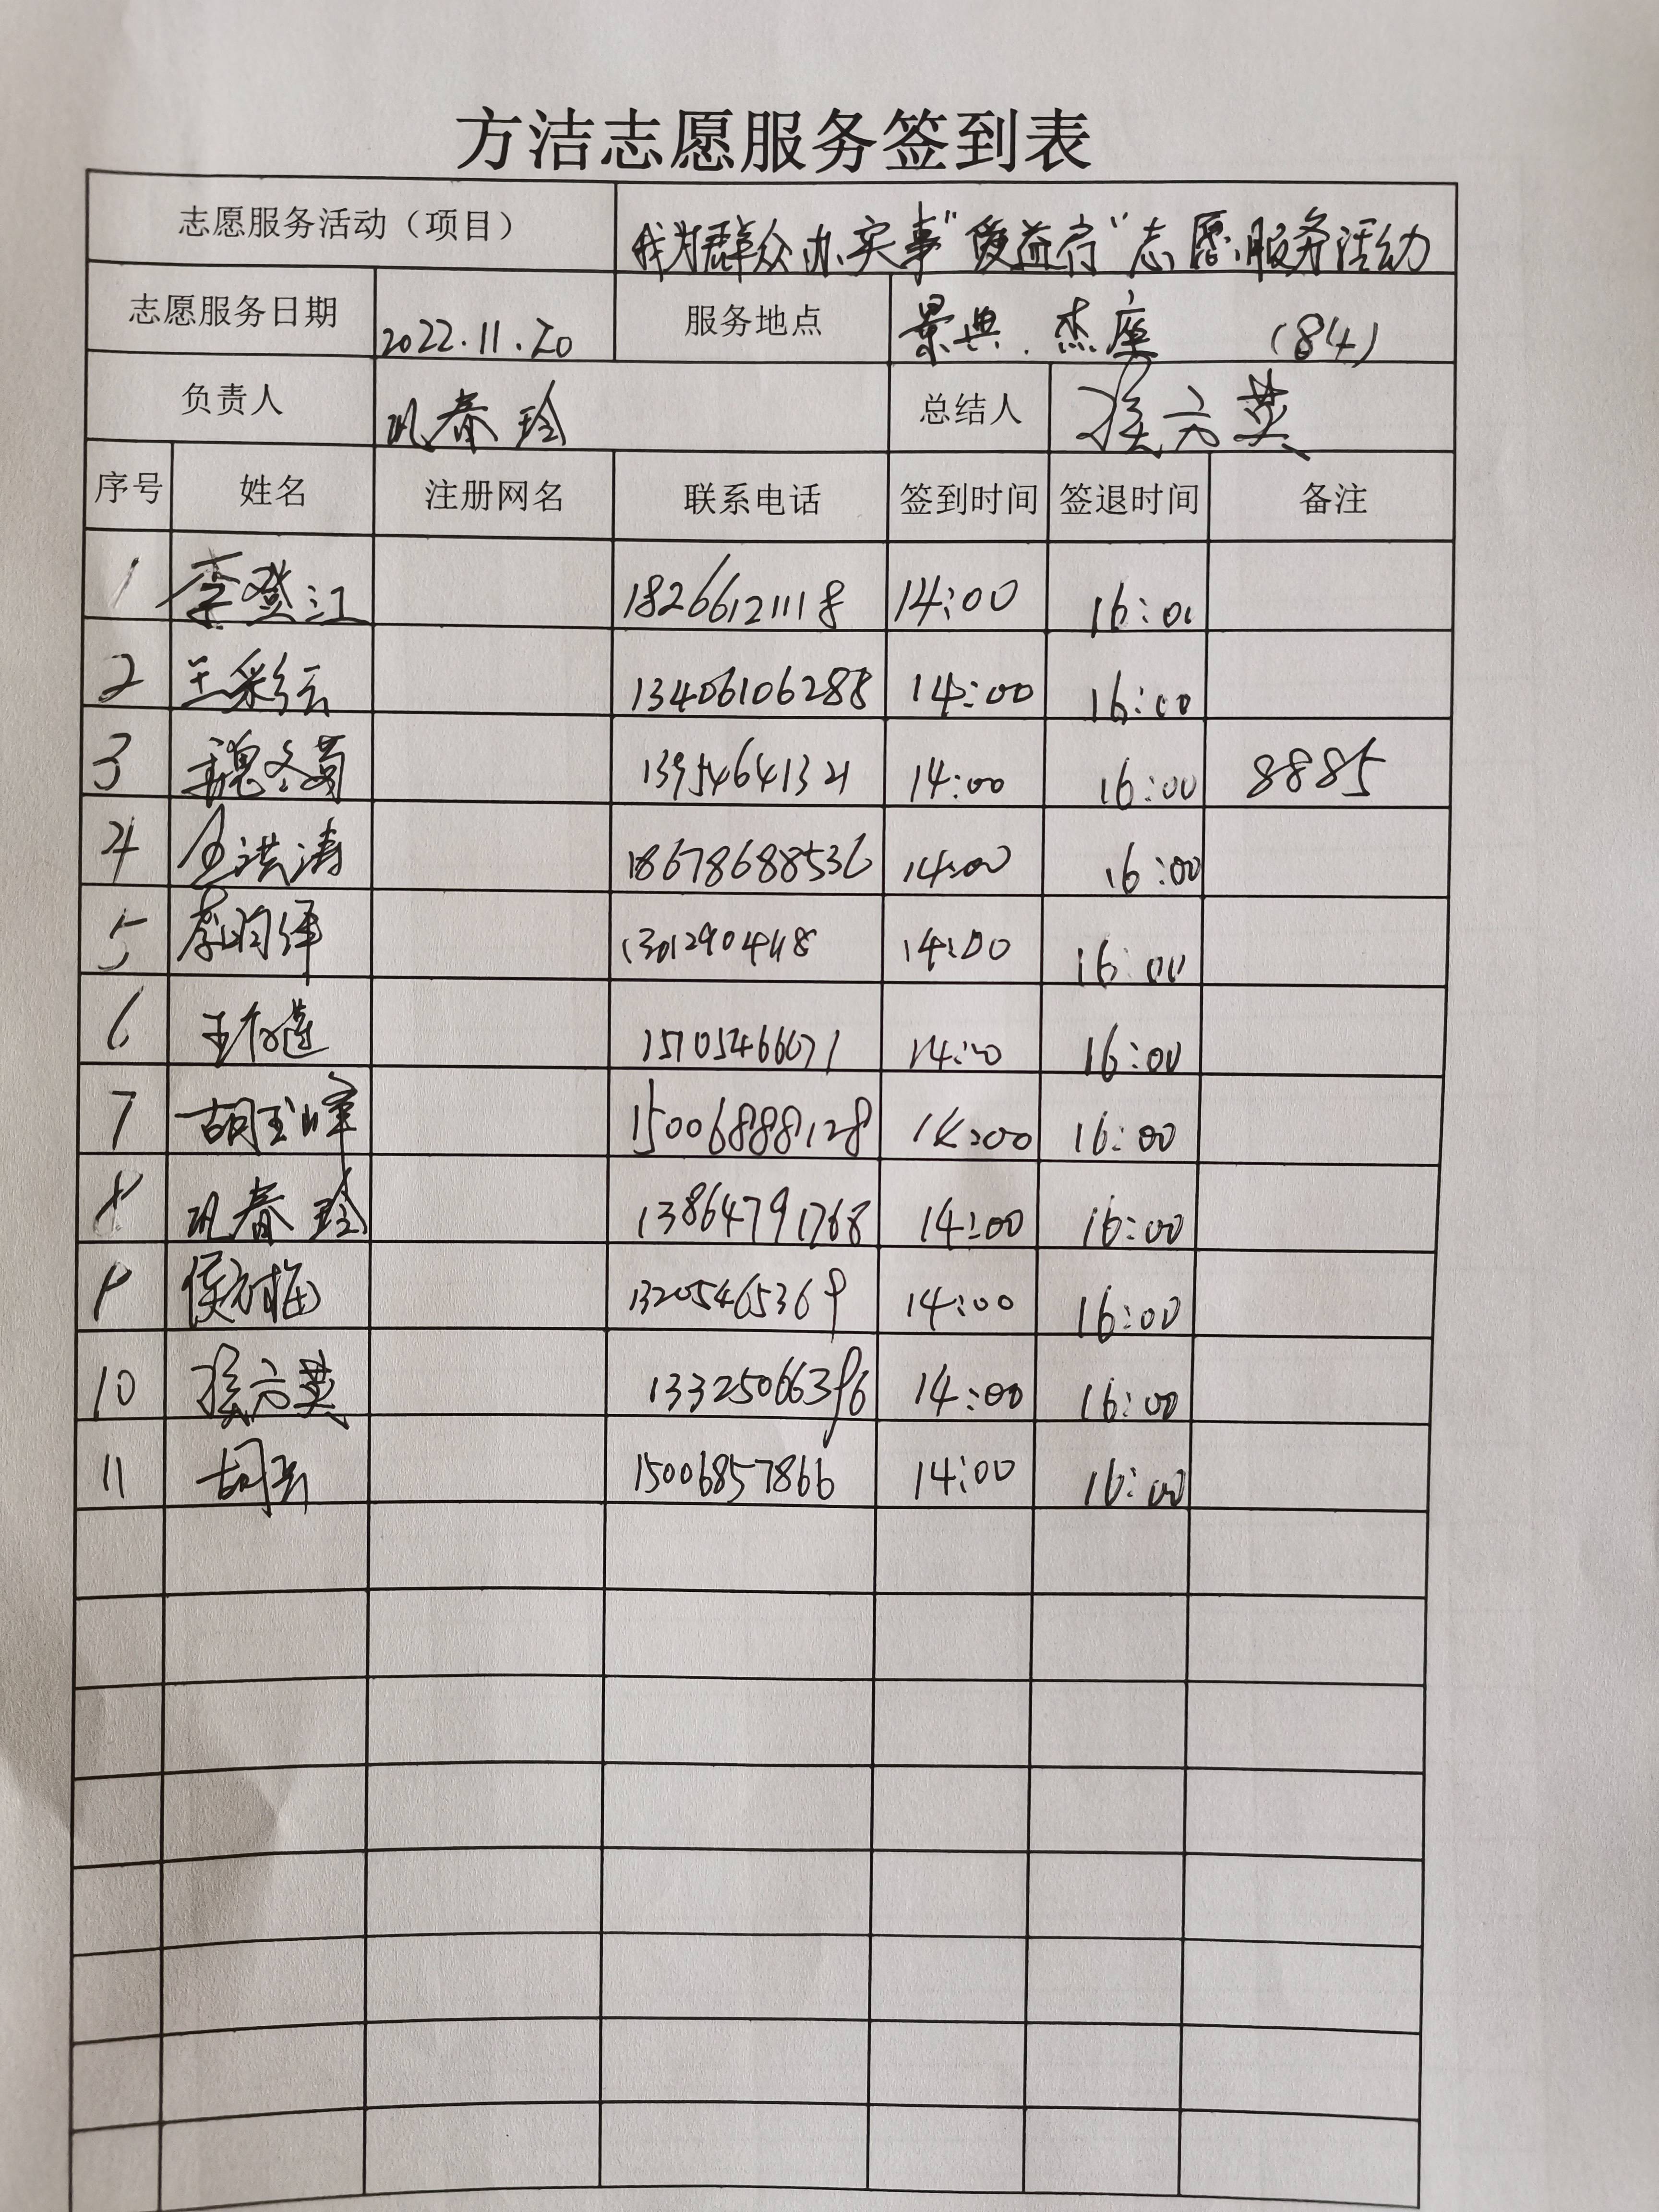 方洁志愿服务签到表
志愿服务活动（项目） 我为群众办实事“爱益行”志愿服务活动
志愿服务日期 2022.11.20 服务地点 景典.杰座 (84)
负责人 巩春玲 总结人 孙六英
序号 姓名 注册网名 联系电话 签到时间 签退时间 备注
1 李登江 18266121118 14:00 16:00
2 王彩云 13406106288 14:00 16:00
3 魏冬菊 13954641321 14:00 16:00 8885
4 洪涛 18678688536 14:00 16:00
5 14:00 16:00
6 王 14:00 16:00
7 胡玉峰 15006888128 14:00 16:00
8 巩春玲 13864791768 14:00 16:00
9 侯 13205465369 14:00 16:00
10 孙六英 13325066396 14:00 16:00
11 胡云 15006857866 14:00 16:00